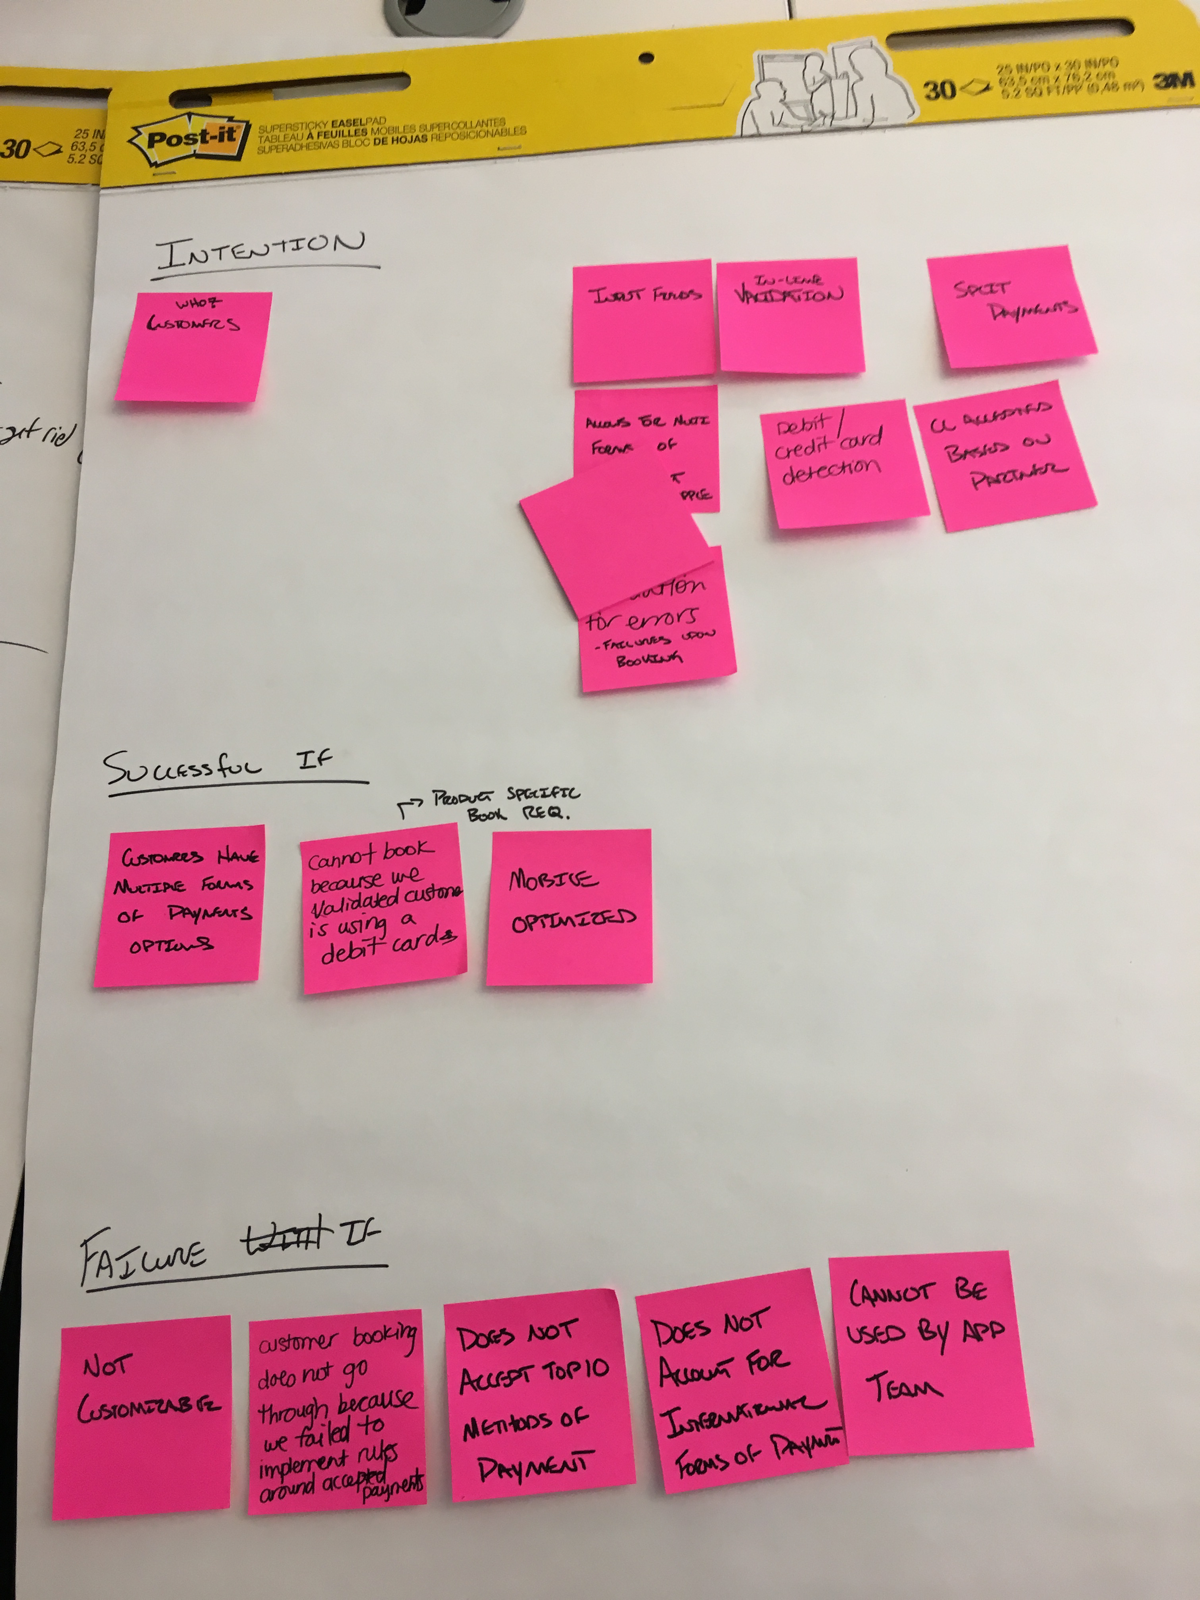 30
25 IN
63,5
5.2 SQ
Post-it
SUPERSTICKY EASEL PAD
TABLEAU À FEUILLES MOBILES SUPERCOLLANTES
SUPERADHESIVAS BLOC DE HOJAS REPOSICIONABLES
30
25 IN/PO X 30 IN/PO
63,5 cm x 76,2 cm
5.2 SQ FT/PP (0,48 m²)
3M
get rid
INTENTION
WHO?
CUSTOMERS
INPUT FIELDS
IN-LINE
VALIDATION
SPLIT
PAYMENTS
ALLOWS FOR MULTI
FORMS OF
PPLE
Debit/
credit card
detection
CC ACCEPTED
BASED ON
PARTNER
for errors
- FAILURES UPON
BOOKING
SUCCESSFUL IF
PRODUCT SPECIFIC
BOOK REQ.
CUSTOMERS HAVE
MULTIPLE FORMS
OF PAYMENTS
OPTIONS
Cannot book
because we
validated customer
is using a
debit card
MOBILE
OPTIMIZED
FAILURE IF
NOT
CUSTOMIZABLE
customer booking
does not go
through because
we failed to
implement rules
around accepted
payments
DOES NOT
ACCEPT TOP 10
METHODS OF
PAYMENT
DOES NOT
ACCOUNT FOR
INTERNATIONAL
FORMS OF PAYMNT
CANNOT BE
USED BY APP
TEAM